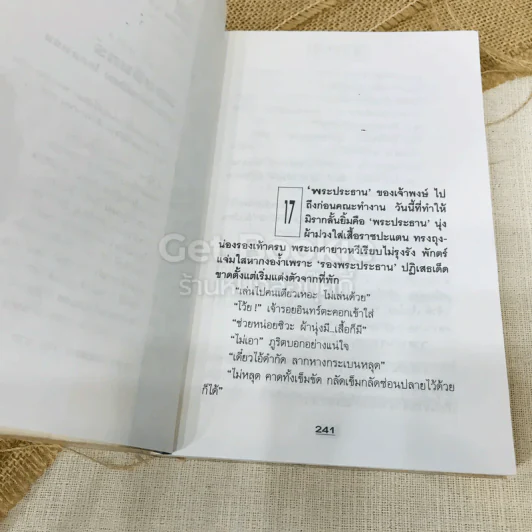 17
‘พระประธาน’ ของเจ้าพงษ์ ไป
ถึงก่อนคณะทำงาน วันนี้ที่ทำให้
มิรากลั้นยิ้มคือ ‘พระประธาน’ นุ่ง
ผ้าม่วงใส่เสื้อราชปะแตน ทรงถุง-
น่องรองเท้าครบ พระเกศายาวหวีเรียบไม่รุงรัง พักตร์
แจ่มใสหากงอง้ำเพราะ ‘รองพระประธาน’ ปฏิเสธเด็ด
ขาดตั้งแต่เริ่มแต่งตัวจากที่พัก
“เล่นไปคนเดียวเหอะ ไม่เล่นด้วย”
“โว้ย !” เจ้ารอยอินทร์ตะคอกเข้าใส่
“ช่วยหน่อยซิวะ ผ้านุ่งมี...เสื้อก็มี”
“ไม่เอา” ภูริตบอกอย่างแน่ใจ
“เดี๋ยวไอ้ดำกัด ลากหางกระเบนหลุด”
“ไม่หลุด คาดทั้งเข็มขัด กลัดเข็มกลัดซ่อนปลายไว้ด้วย
ก็ได้”
241